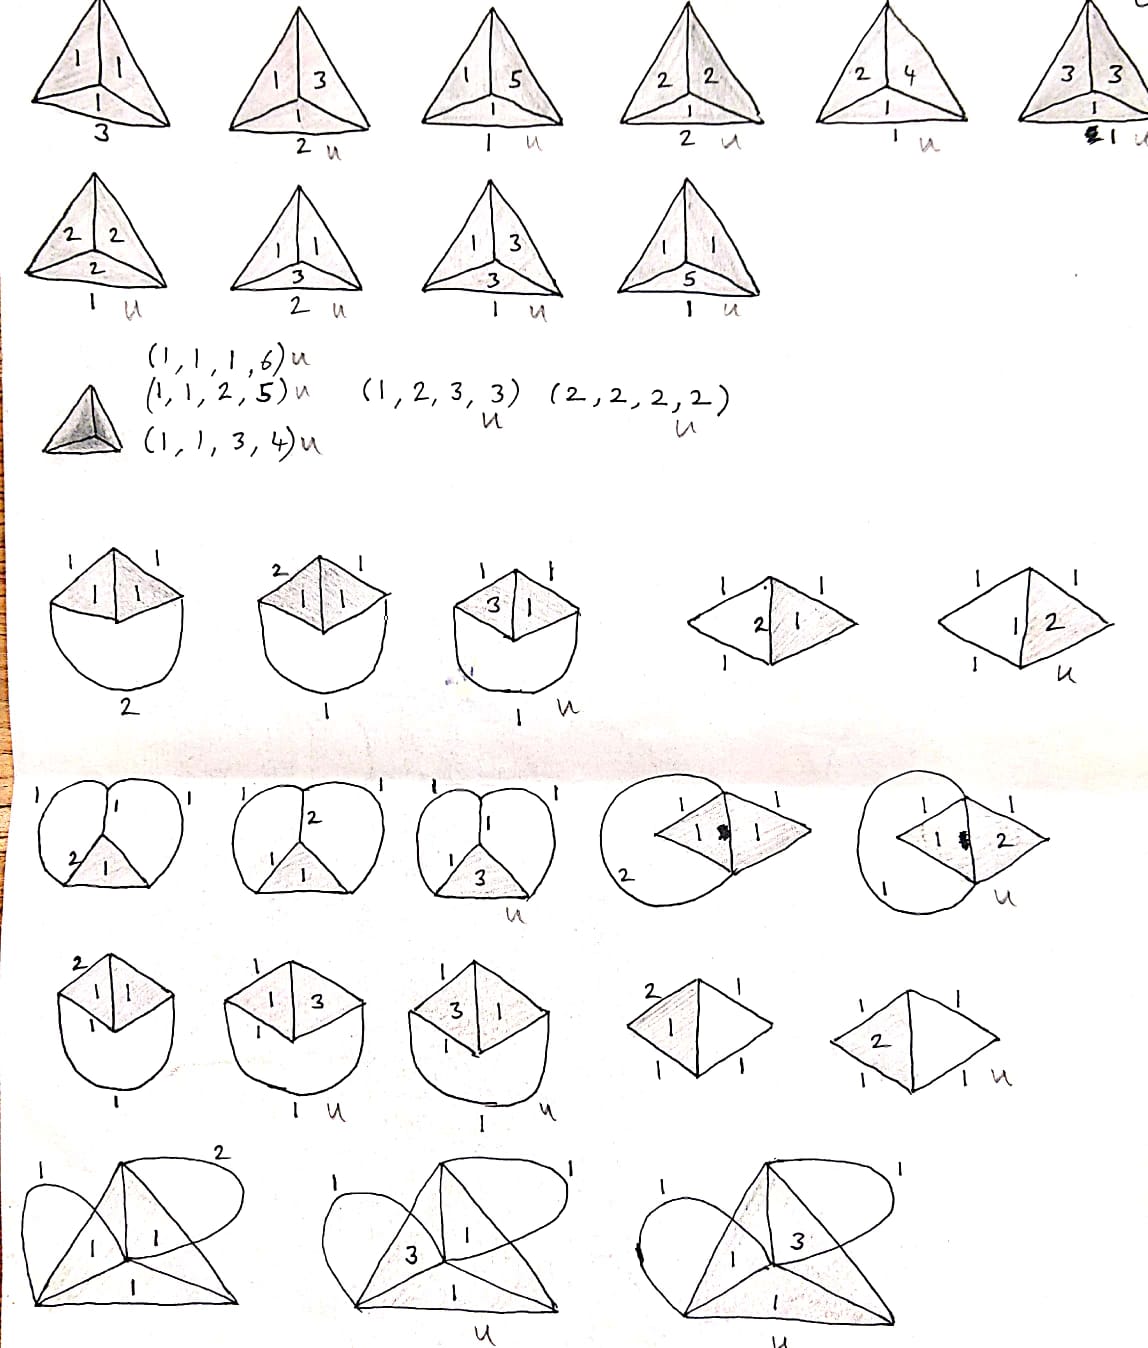 1 1 1 3
1 3 1 2 u
1 5 1 1 u
2 2 1 2 u
2 4 1 1 u
3 3 1 1 u
2 2 2 1 u
1 1 3 2 u
1 3 3 1 u
1 1 5 1 u
(1,1,1,6)u
(1,1,2,5)u (1,2,3,3)u (2,2,2,2)u
(1,1,3,4)u
1 1 1 1 2
2 1 1 1 1
1 1 3 1 1 u
1 1 2 1 1
1 1 1 2 1 u
1 1 1 2 1
1 1 2 1 1
1 1 1 1 3 u
1 1 1 1 2
1 1 1 2 1 u
2 1 1 1 1
1 1 3 1 1 u
1 3 1 1 1 u
2 1 1 1 1
1 1 2 1 1 u
1 2 1 1 1
1 1 3 1 1 u
1 1 1 3 1 u